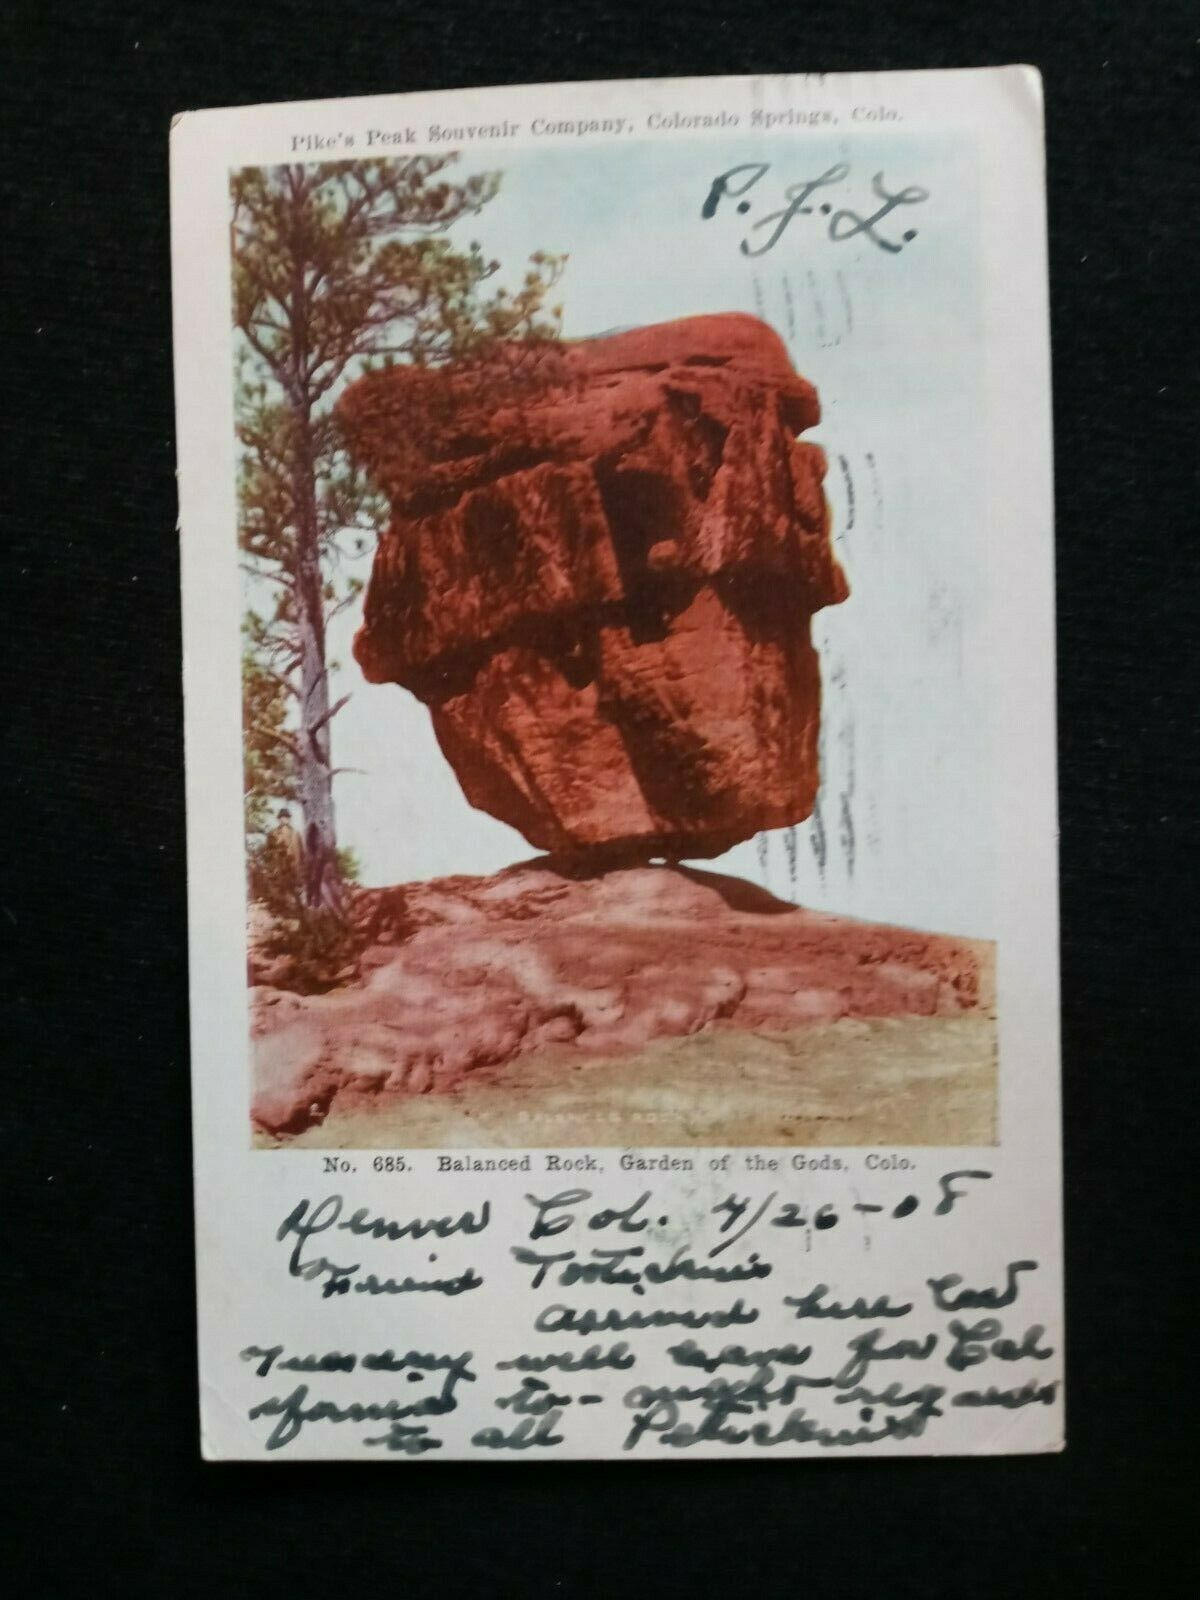 Pike's Peak Souvenir Company, Colorado Springs, Colo.
P. J. L.
BALANCED ROCK
No. 685. Balanced Rock, Garden of the Gods, Colo.
Denver Col. 4/26-08
Friend
arrived here last
Tuesday will leave for Cal
ifornia to-night regards
to all